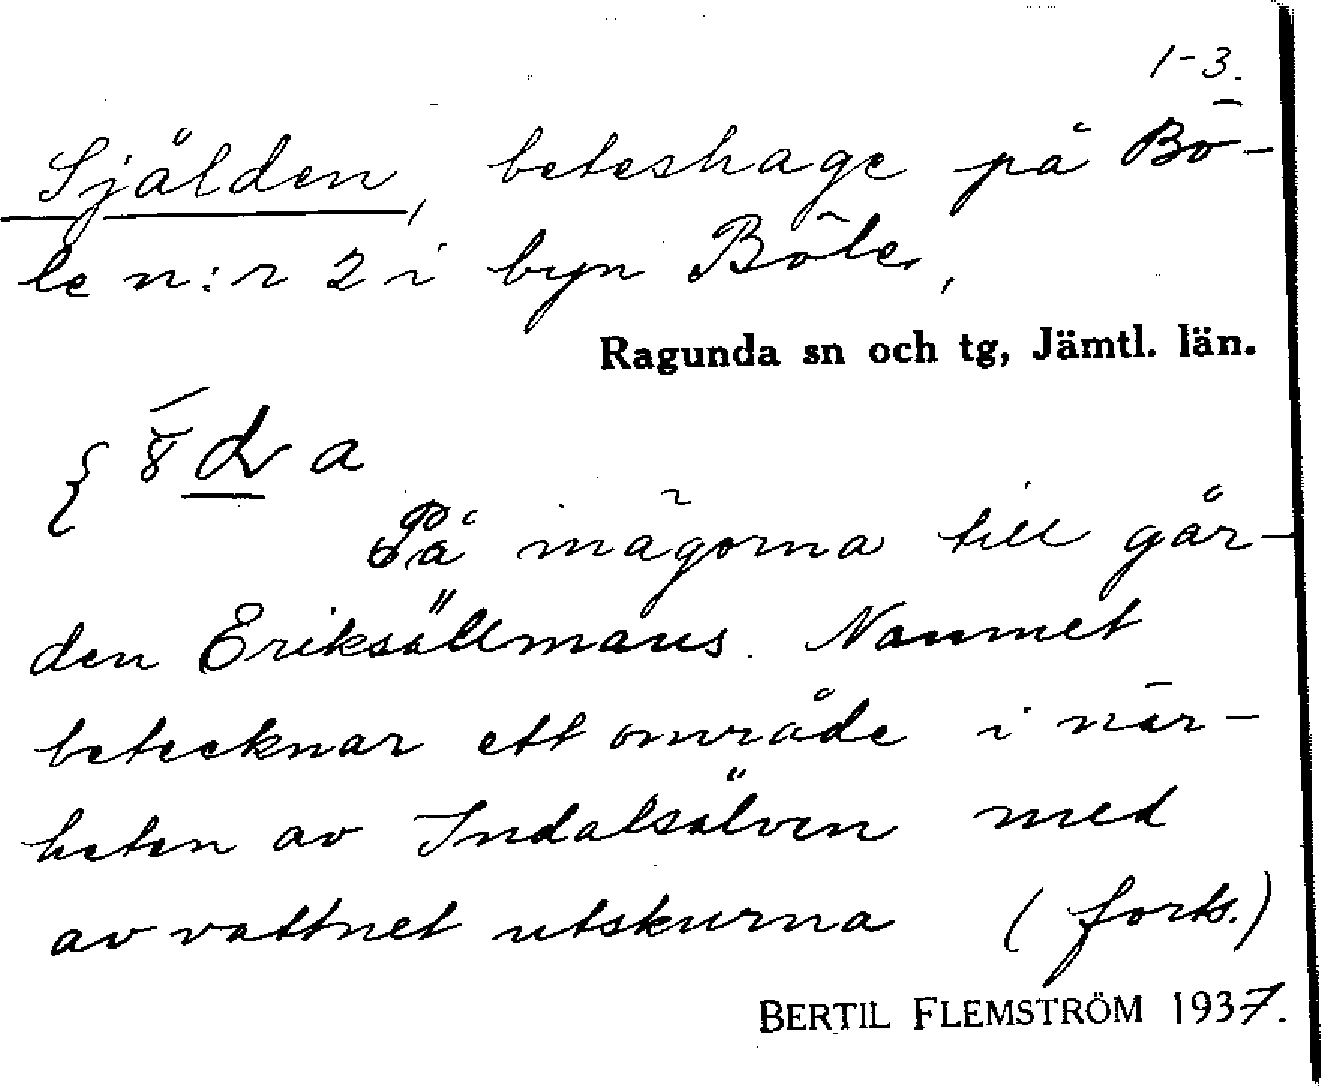 1-3.
Själden, beteshage på Bö-
le n:r 2 i byn Böle,
Ragunda sn och tg, Jämtl. län.
På inägorna till går-
den Eriksällmans. Namnet
betecknar ett område i när-
heten av Indalsälven med
av vattnet utskurna (forts.)
BERTIL FLEMSTRÖM 1937.